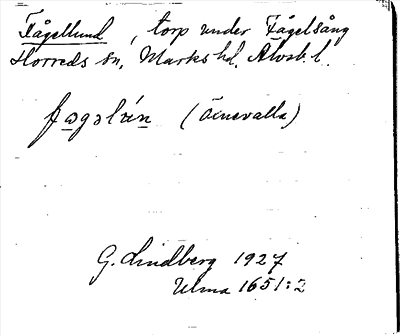 Fågellund, torp under Fågelsång
Horreds sn, Marks hd. Älvsb. l.
(Öinevalla)
G. Lindberg 1927
Ulma 1651:2